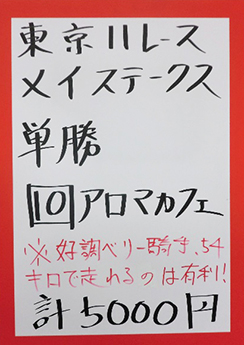 東京11レース
メイステークス
単勝
10アロマカフェ
※好調ベリー騎手、54
キロで走れるのは有利!!
計5000円